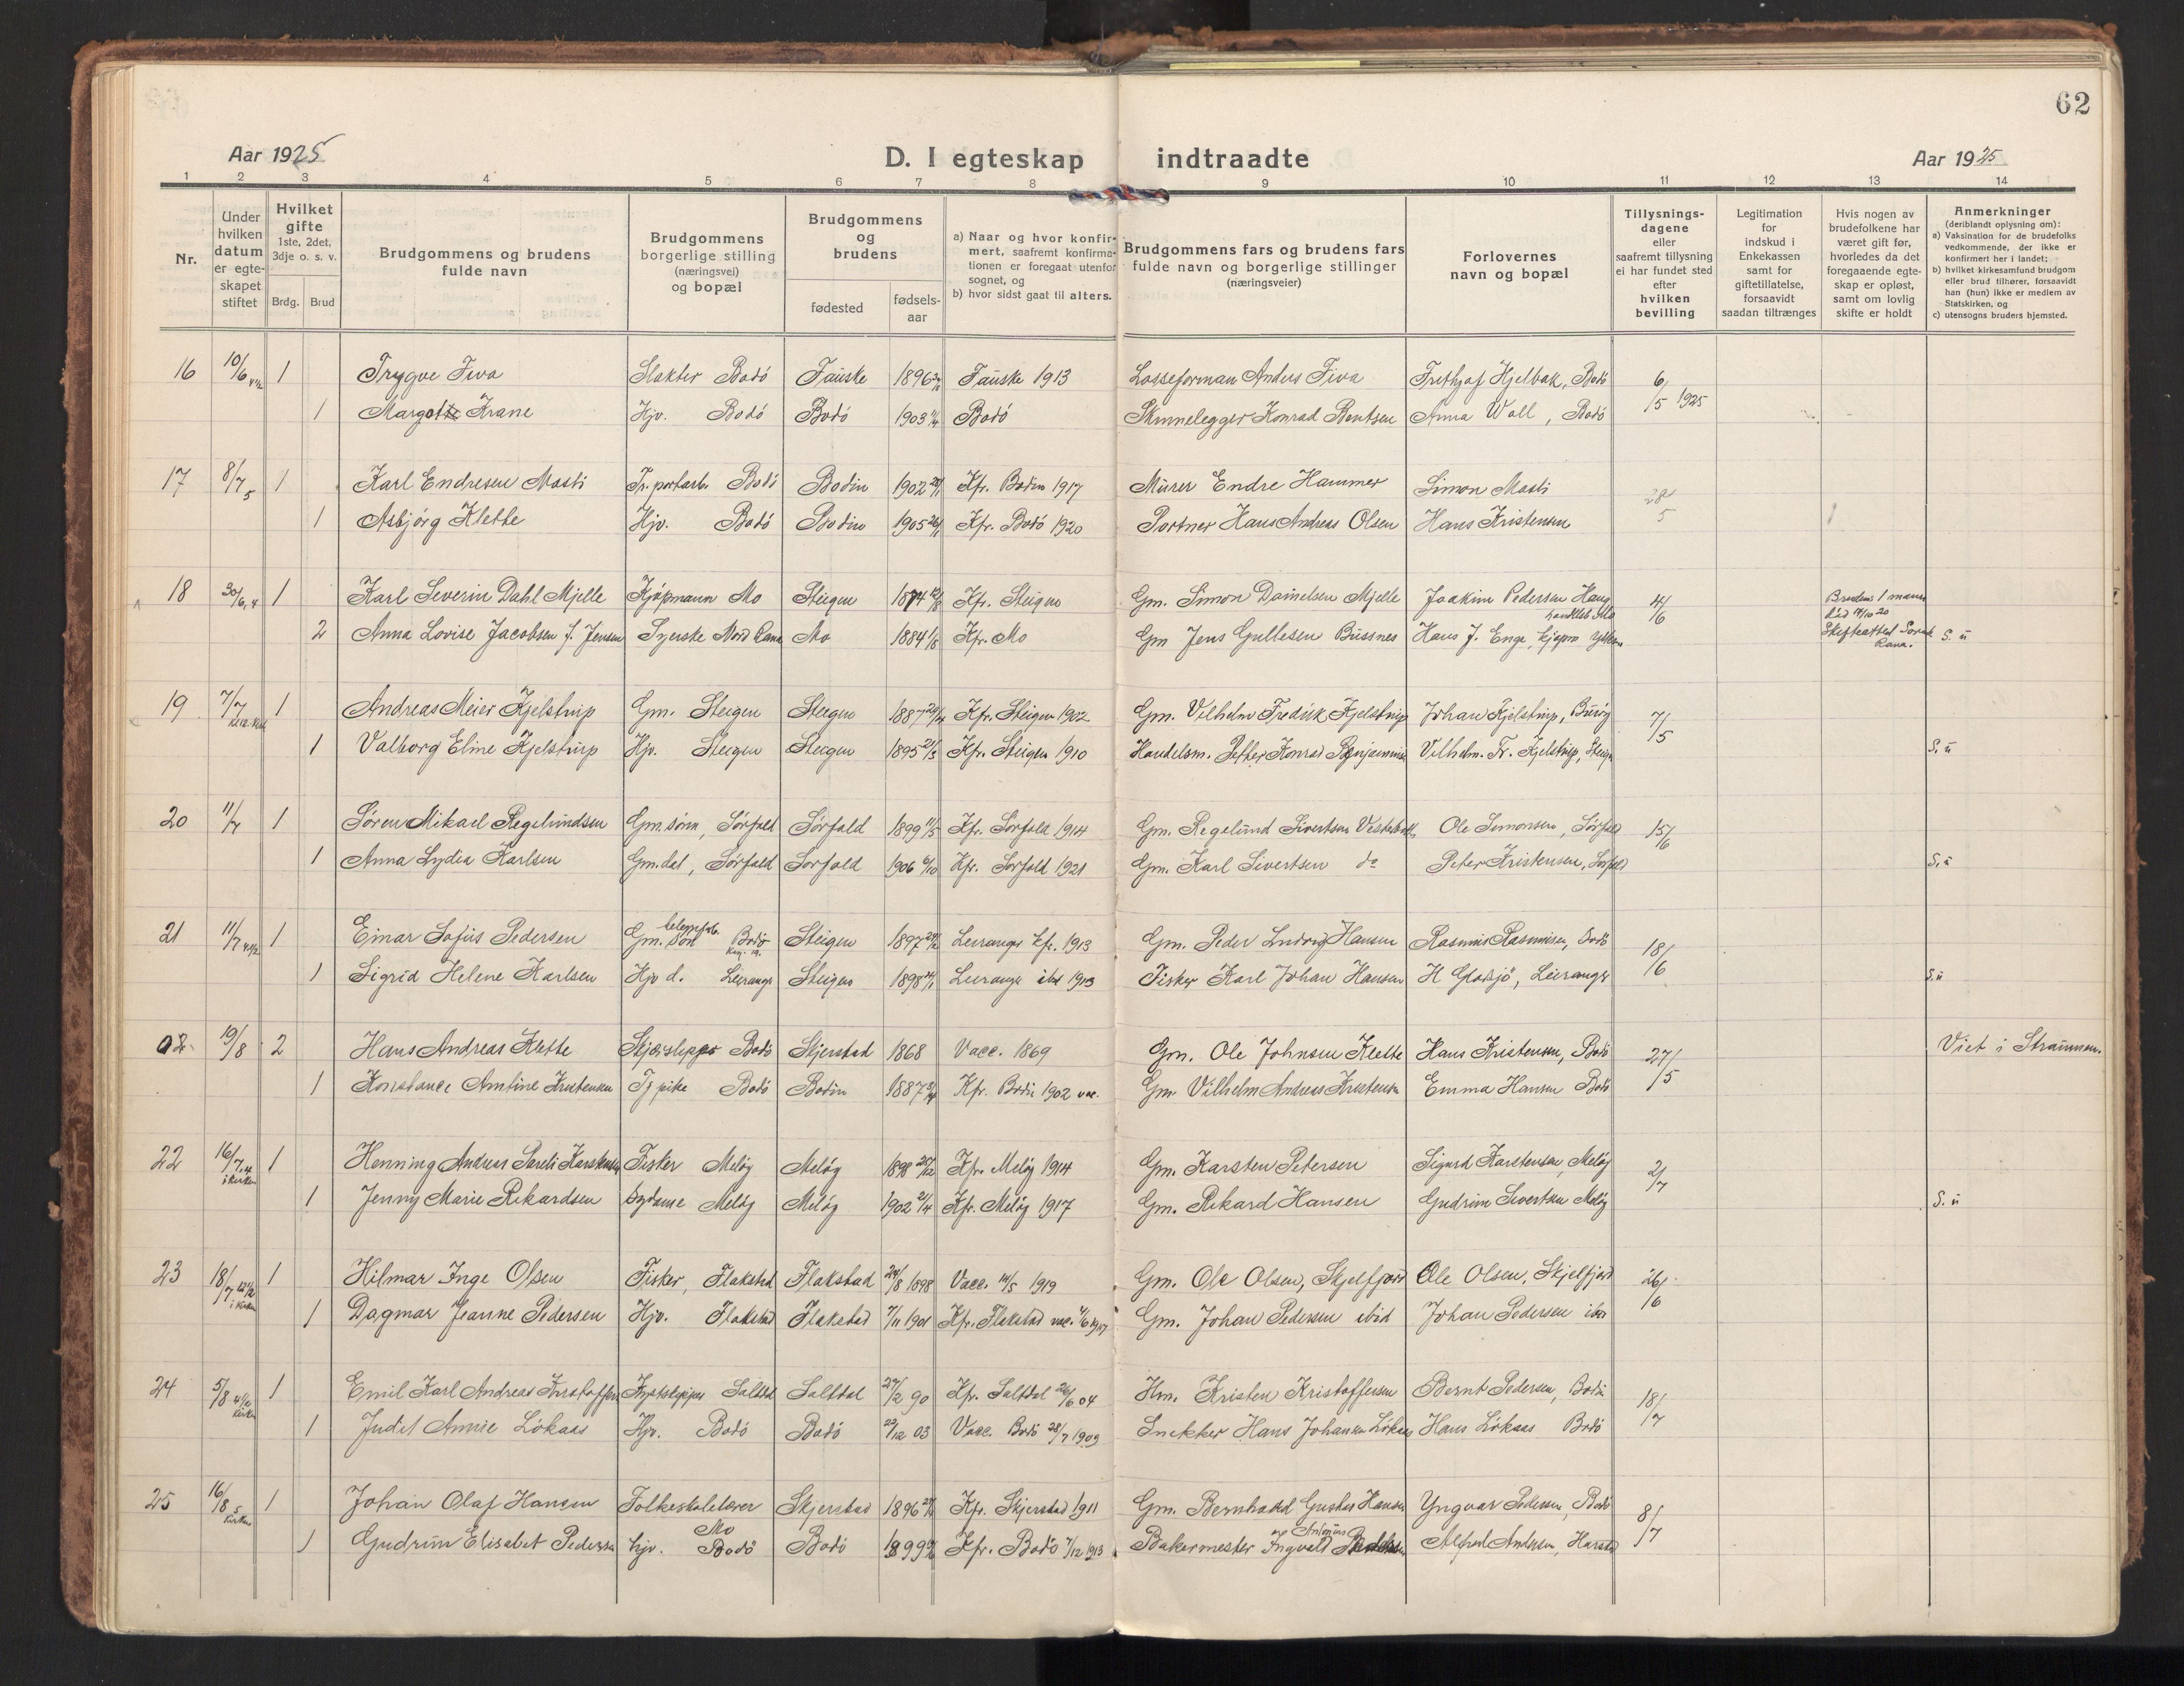 62
Aar 1925
D. I egteskap indtraadte
Aar 1925
1 2 3 4 5 6 7 8 9 10 11 12 13 14
Nr.
Under hvilken datum er egte-skapet stiftet
Hvilket gifte 1ste, 2det, 3dje o. s. v.
Brdg. Brud
Brudgommens og brudens fulde navn
Brudgommens borgerlige stilling (næringsvei) og bopæl
Brudgommens og brudens
fødested
fødsels-aar
a) Naar og hvor konfir-mert, saafremt konfirma-tionen er foregaat utenfor sognet, og
b) hvor sidst gaat til alters.
Brudgommens fars og brudens fars fulde navn og borgerlige stillinger (næringsveier)
Forlovernes navn og bopæl
Tillysnings-dagene eller saafremt tillysning ei har fundet sted efter hvilken bevilling
Legitimation for indskud i Enkekassen samt for giftetillatelse, forsaavidt saadan tiltrænges
Hvis nogen av brudefolkene har været gift før, hvorledes da det foregaaende egte-skap er opløst, samt om lovlig skifte er holdt
Anmerkninger (deriblandt oplysning om):
a) Vaksination for de brudefolks vedkommende, der ikke er konfirmert her i landet;
b) hvilket kirkesamfund brudgom eller brud tilhører, forsaavidt han (hun) ikke er medlem av Statskirken, og
c) utensogns bruders hjemsted.
16 10/6 1 Trygve Fiva Slakter Bodö Fauske 1896 Fauske 1913 Losseforman Anders Fiva Frithjof Hjelbak, Bodö 6/5 1925
1 Margot Krane Hjv. Bodö Bodö 1903 Bodö Skinnelegger Konrad Bentsen Anna Woll, Bodö
17 8/7 5 1 Karl Endresen Mosti Bodö Bodin 1902 Kfr. Bodin 1917 Murer Endre Hammer Simon Mosti 28/5
1 Asbjörg Klette Hjv. Bodö Bodin 1905 Kfr. Bodö 1920 Portner Hans Andreas Olsen Hans Kristensen
18 30/6, 4 1 Karl Severin Dahl Mjelle Kjöpmann Mo Steigen 1874 Kfr. Steigen Gm. Simon Danielsen Mjelle Joakim Pedersen Haug 4/6 Brudens 1 mann död 14/10 20
2 Anna Lovise Jacobsen f. Jensen Syerske Nord Rana Mo 1884 Kfr. Mo Gm Jens Gullesen Bussnes Hans J. Enge, Skifteattest Rana. S. u
19 7/7 1 Andreas Meier Kjelstrup Gm. Steigen Steigen 1887 Kfr. Steigen 1902 Gm. Vilhelm Fredrik Kjelstrup Johan Kjelstrup, 7/5
1 Valborg Eline Kjelstrup Hjv. Steigen Steigen 1895 Kfr. Steigen 1910 Handelsm. Petter Konrad Vilhelm. Fr. Kjelstrup, Steigen S. u
20 11/7 1 Sören Mikael Regelundsen Gm. sönn, Sörfold Sörfold 1899 11/5 Kfr. Sörfold 1914 Gm. Regelund Sivertsen Ole Simonsen, Sörfold 15/6
1 Anna Lydia Karlsen Gm. dat, Sörfold Sörfold 1906 6/10 Kfr. Sörfold 1921 Gm. Karl Sivertsen do Peter Kristensen, Sörfold S. u
21 11/7 1 Einar Sofus Pedersen Gm. sön Bodö Steigen 1897 Leiranger kfr. 1913 Gm. Peder Ludvig Hansen Rasmus Rasmusen, Bodö 18/6
1 Sigrid Helene Karlsen Hjv d. Leiranger Steigen 1898 Leiranger ibd 1913 Fisker Karl Johan Hansen H Gladsjö, Leiranger S. u
19/8 2 Hans Andreas Klette Bodö Skjerstad 1868 Vacc. 1869 Gm. Ole Johnsen Klette Hans Kristensen, Bodö 27/5 Viet i Straumen.
1 Konstance Antine Kristensen Tj pike Bodö Bodin 1887 Kfr. Bodin 1902 vac. Gm. Vilhelm Andreas Kristensen Emma Hansen Bodö
22 16/7, 4 i kirken 1 Henning Andreas Fisker Melöy Melöy 1898 Kfr. Melöy 1914 Gm. Karsten Petersen Sigurd Karstensen, Melöy 2/7
1 Jenny Marie Rikardsen Sydame Melöy Melöy 1902 2/4 Kfr. Melöy 1917 Gm. Rikard Hansen Gudrun Sivertsen Melöy S. u
23 18/7 i kirken 1 Hilmar Inge Olsen Fisker, Flakstad Flakstad 24/8 1898 Vacc. 14/5 1919 Gm. Ole Olsen, Skjelfjord Ole Olsen, Skjelfjord 26/6
1 Dagmar Jeanne Pedersen Hjv. Flakstad Flakstad 7/11 1901 Kfr. Flakstad vac. Gm. Johan Pedersen ibid Johan Pedersen ibid
24 5/8 4 1/2 kirken 1 Emil Karl Andreas Kristoffersen Saltdal Saltdal 27/2 90 Kfr. Saltdal 26/6 04 Hm. Kristen Kristoffersen Bernt Pedersen, Bodö 18/7
1 Judit Annie Lökaas Hjv. Bodö Bodö 22/12 03 Vacc. Bodö 28/7 1909 Snekker Hans Johansen Lökaas Hans Lökaas Bodö
25 16/8 5 kirken 1 Johan Olaf Hansen Folkeskolelærer Mo Skjerstad 1896 Kfr. Skjerstad 1911 Gm. Bernhard Gustav Hansen Yngvar Pedersen, Bodö 8/7
1 Gudrun Elisabet Pedersen hjv. Bodö Bodö 1899 Kfr. Bodö 7/12 1913 Bakermester Ingvald Antonius Alfred Andersen, Harstad